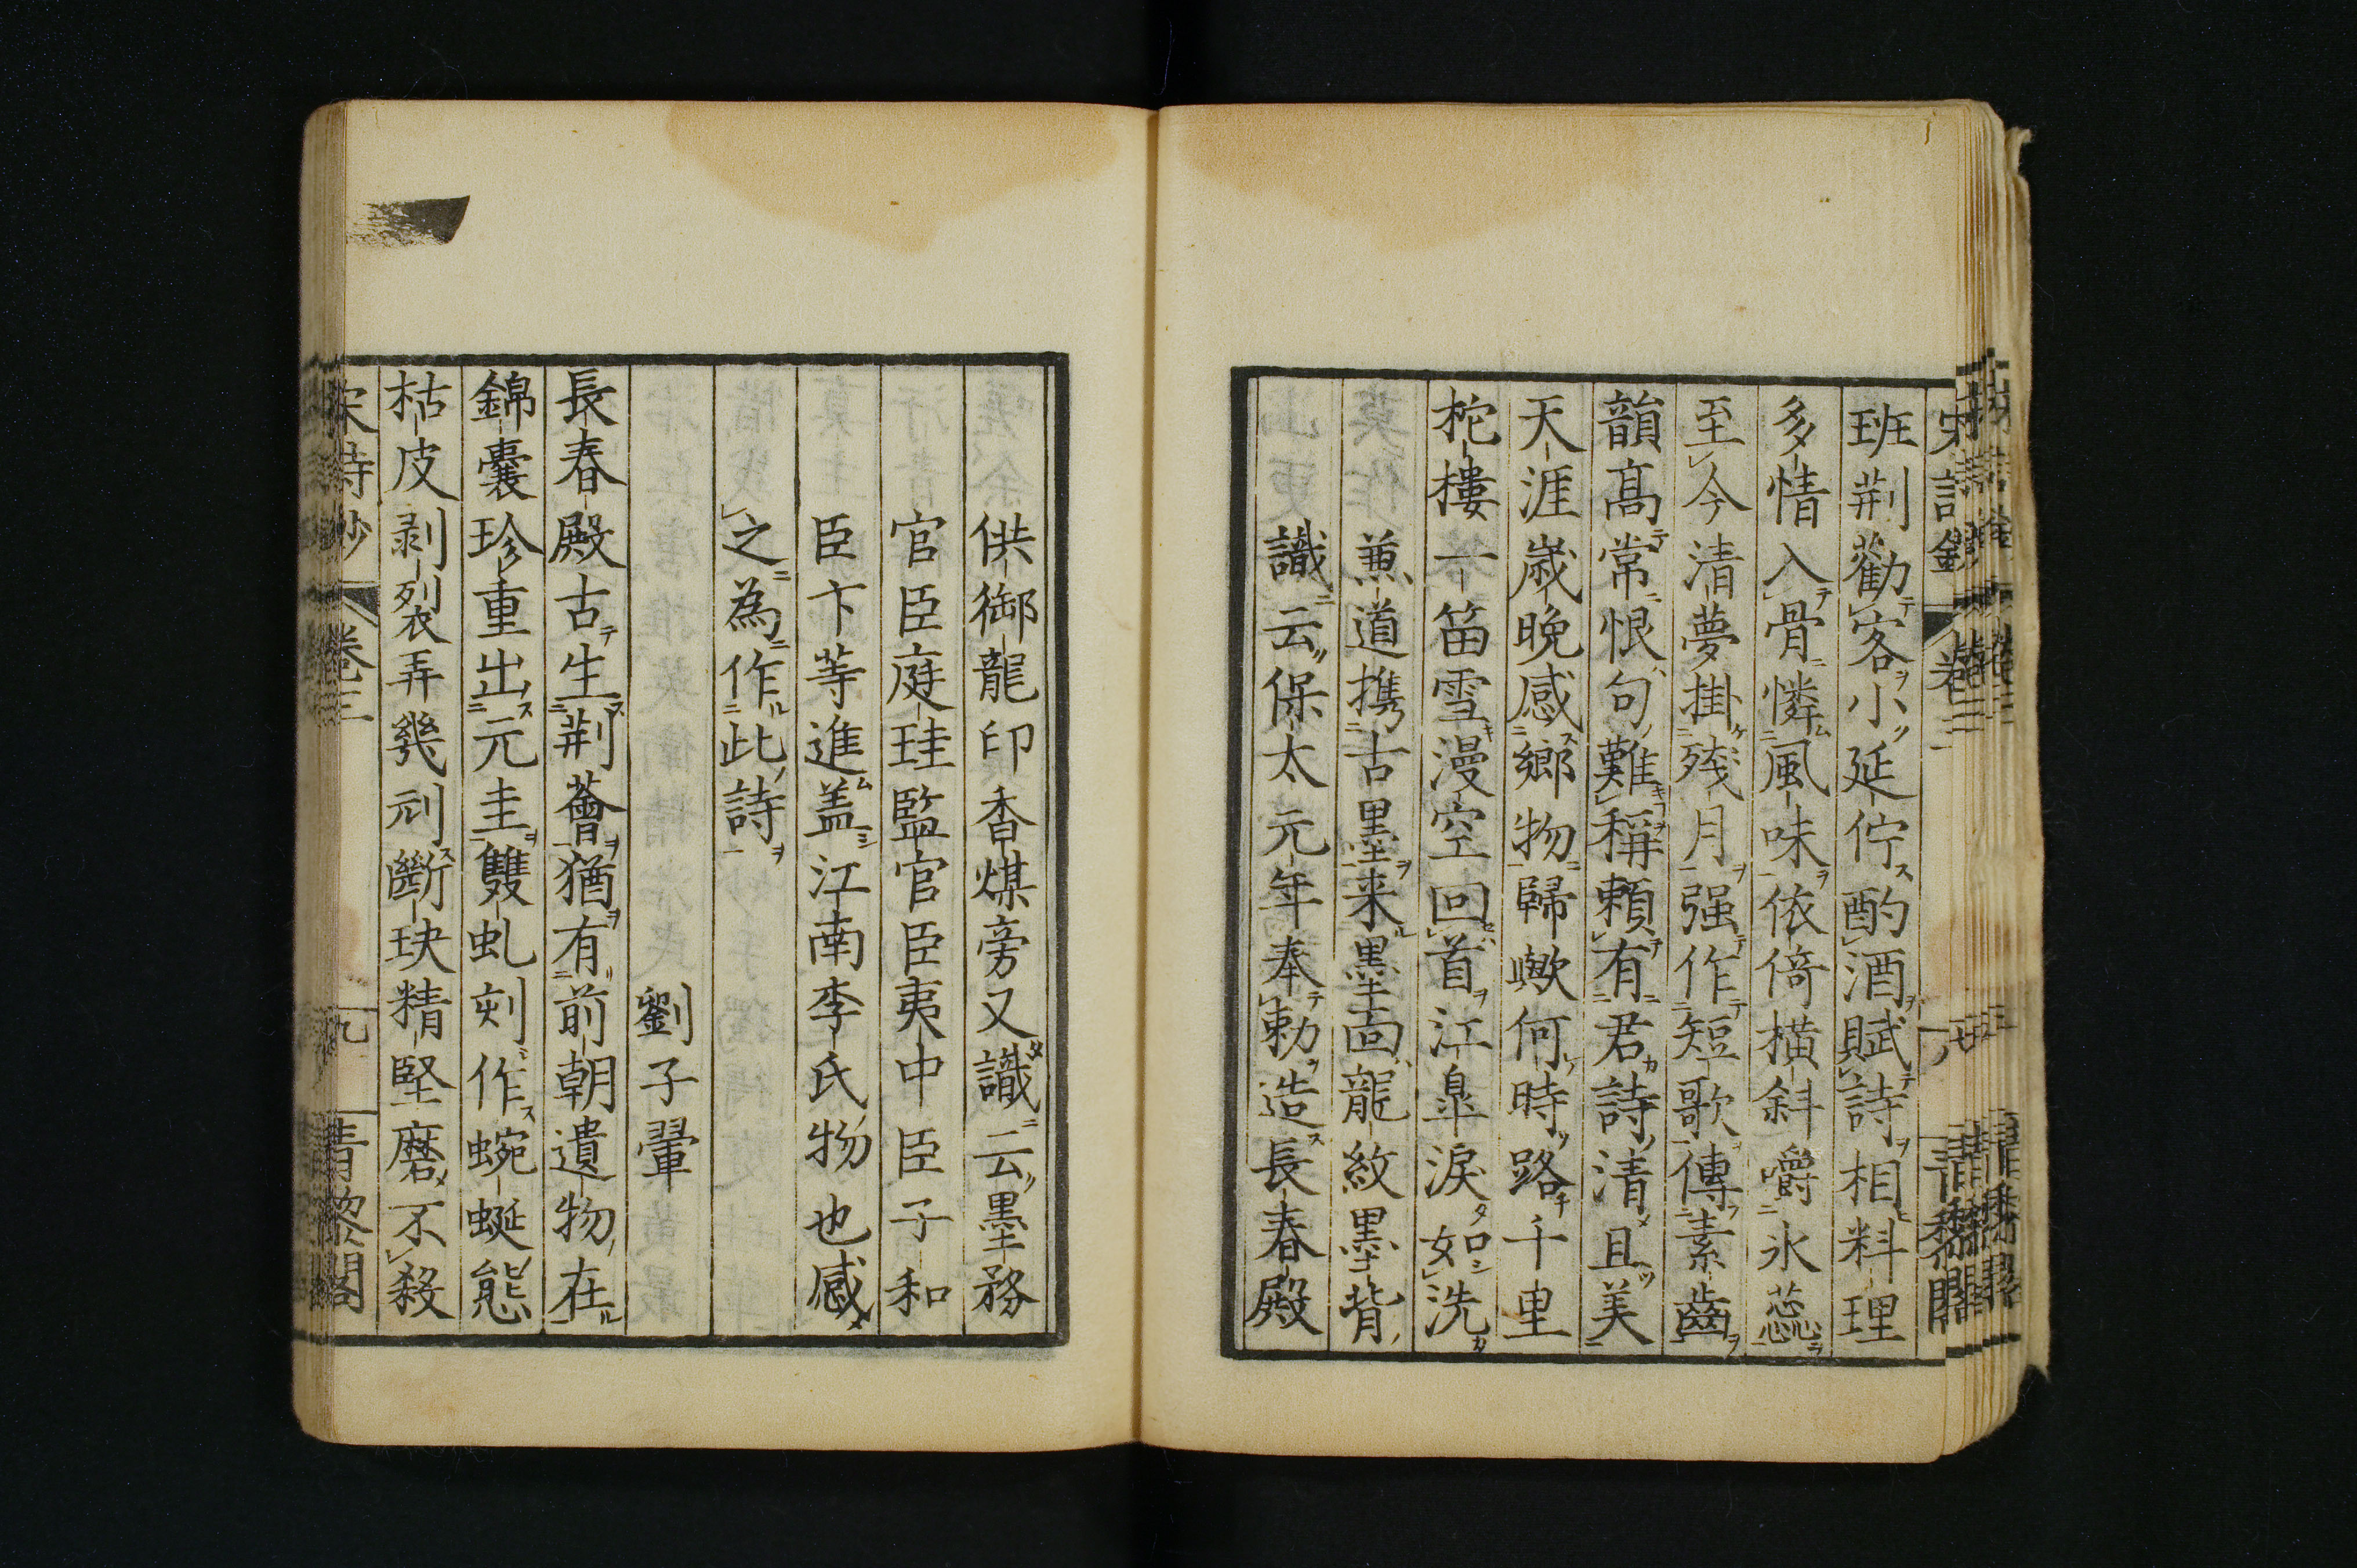 班荆勸客小延佇酌酒賦詩相料理
多情入骨憐風味依倚橫斜嚼氷蕊
至今清夢掛殘月强作短歌傳素齒
韻髙常恨句難稱賴有君詩清且美
天涯歳晚感鄉物歸歟何時路千里
柁樓一笛雪漫空回首江臯淚如洗
兼道携古墨来墨面龍紋墨背
識云保太元年奉勅造長春殿
供御龍印香煤旁又識云墨務
官臣庭珪監官臣夷中臣子和
臣卞等進盖江南李氏物也感
之為作此詩
劉子翬
長春殿古生荆薈猶有前朝遺物在
錦囊珍重出元圭雙虬刻作蜿蜒態
枯皮剥裂弄幾刓斷玦精堅磨不殺
宋詩鈔 卷三 九 青黎閣